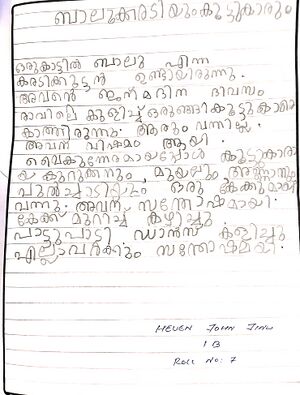 ബാലുക്കരടിയും കൂട്ടുകാരും
ഒരുകാട്ടിൽ ബാലു എന്ന
കരടിക്കുട്ടൻ ഉണ്ടായിരുന്നു.
അവന്റെ ജന്മദിന ദിവസം
രാവിലെ കുളിച്ച് ഒരുങ്ങി കൂട്ടുകാരെ
കാത്തിരുന്നു. ആരും വന്നില്ല.
അവന് വിഷമം ആയി.
വൈകുന്നേരമായപ്പോൾ കൂട്ടുകാരാ
യ കുറുക്കനും, മുയലും അണ്ണാനും
ഒരു കേക്കുമായി
വന്നു. അവന് സന്തോഷമായി.
കേക്ക് മുറിച്ച് കഴിച്ചു.
പാട്ടുപാടി ഡാൻസ് കളിച്ചു
എല്ലാവർക്കും സന്തോഷമായി.
HEVEN JOHN JINU
1 B
Roll No: 7